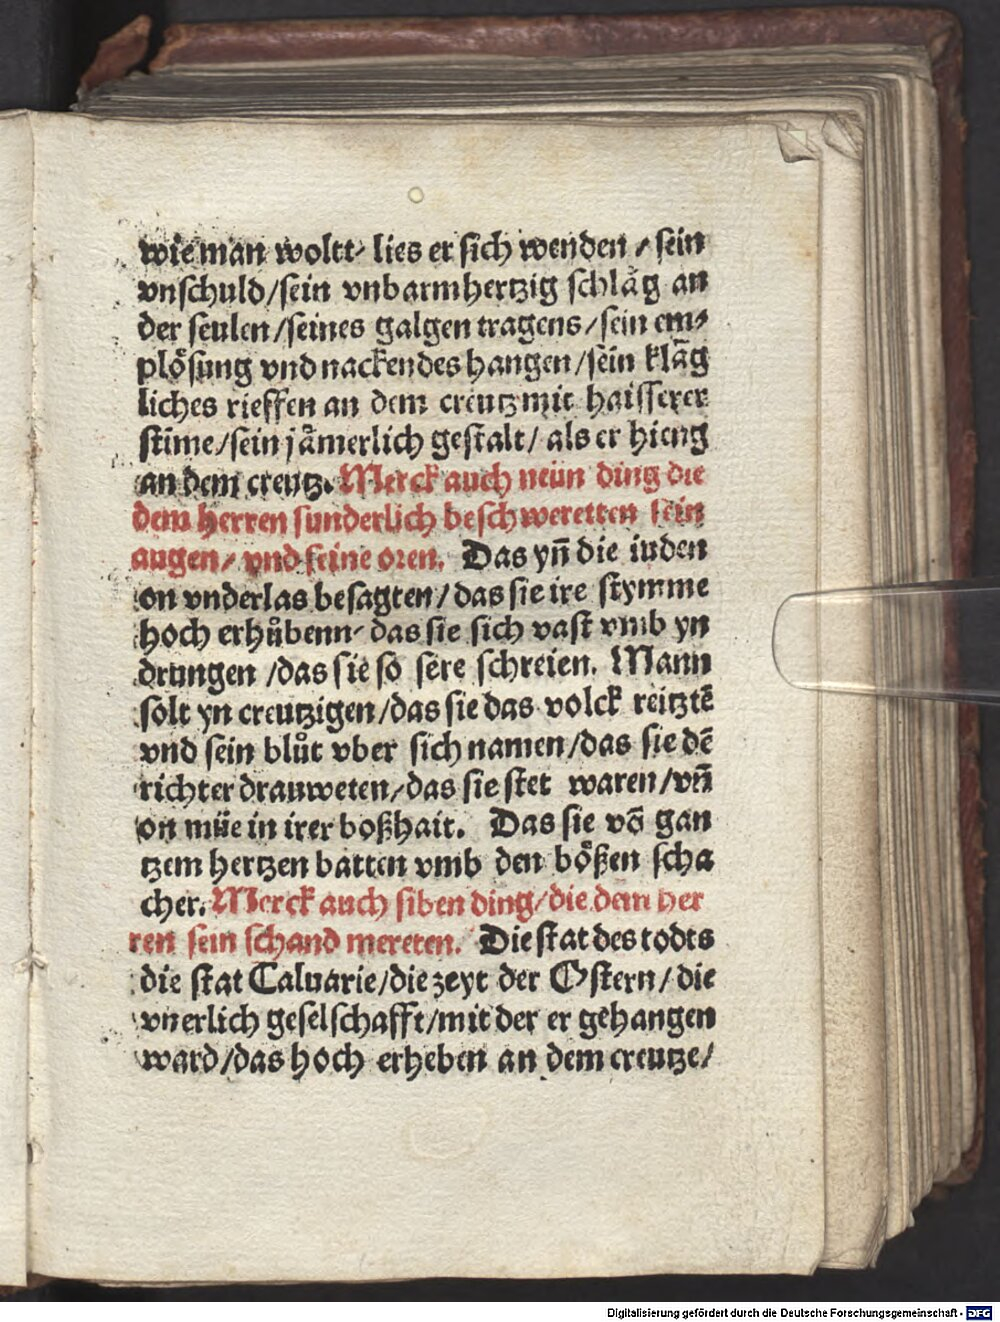 wie man woltt/ lies er sich wenden / sein
vnschuld/sein vnbarmhertzig schläg an
der seulen/seines galgen tragens/sein em⸗
plösung vnd nackendes hangen/sein kläg
liches rieffen an dem creutz mit haisserer
stime/sein jämerlich gestalt/ als er hieng
an dem creutz. Merck auch neün ding die
dem herren sunderlich beschweretten sein
augen/ vnd seine oren. Das yn̄ die iuden
on vnderlas besagten/das sie ire stymme
hoch erhůbenn/ das sie sich vast vmb yn
drungen /das sie so sere schreien. Mann
solt yn creutzigen/das sie das volck reitztē
vnd sein blůt vber sich namen/das sie dē
richter drauweten/das sie stet waren/vn̄
on müe in irer boßhait. Das sie vō gan
tzem hertzen batten vmb den bößen scha
cher. Merck auch siben ding/die dem her
ren sein schand mereten. Die stat des todts
die stat Caluarie/die zeyt der Ostern/die
vnerlich geselschafft/mit der er gehangen
ward/das hoch erheben an dem creutze/
Digitalisierung gefördert durch die Deutsche Forschungsgemeinschaft - DFG